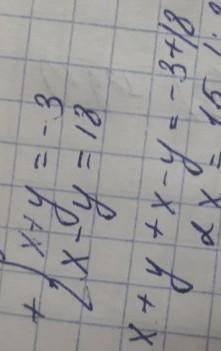 + { x + y = -3
x - y = 18
x + y + x - y = -3 + 18
2x = 15